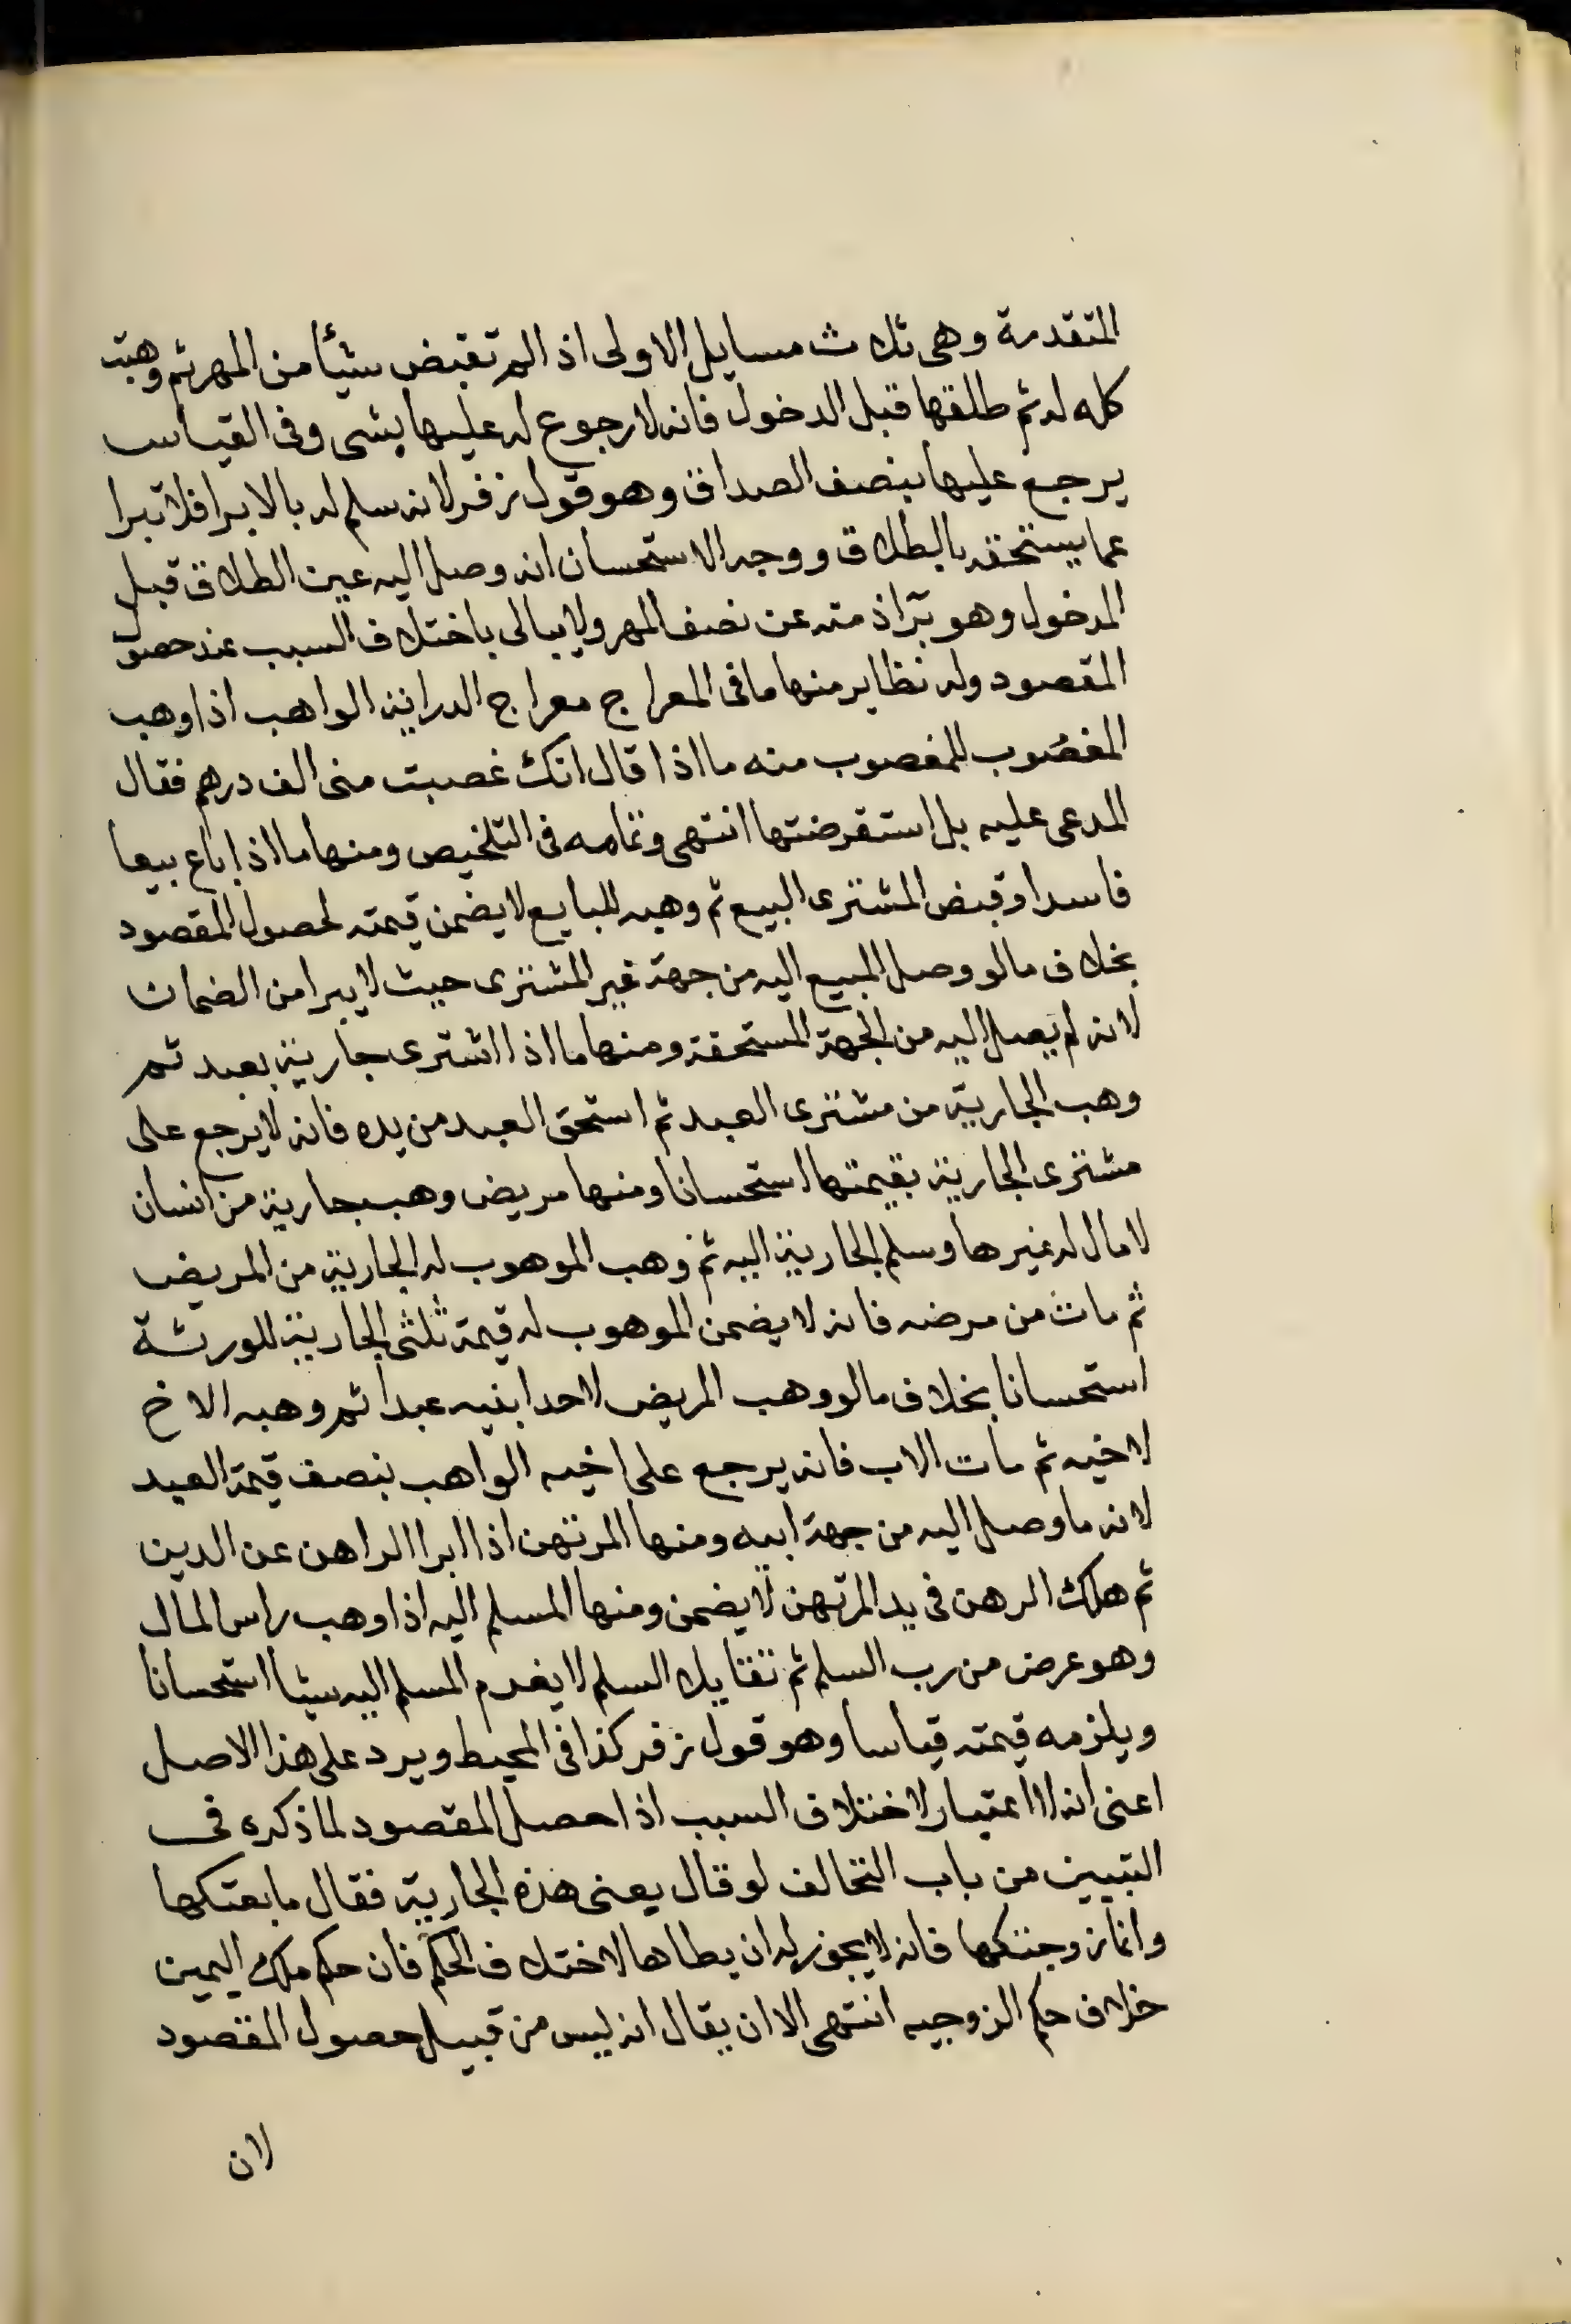 المتقدمة وهى ثلاث مسايل الاولى اذا لم تقبض شيأ من المهر ثم وهبت
كله له ثم طلقها قبل الدخول فانه لا رجوع له عليها بشى وفى القياس
يرجع عليها بنصف الصداق وهو قول زفر لانه سلم له بالابرا فلا تبرا
عما يستحقه بالطلاق ووجه الاستحسان انه وصل اليه عين الطلاق قبل
الدخول وهو برآ ذمته عن نصف المهر ولا يبالى باختلاف السبب عند حصول
المقصود وله نظاير منها ما فى المعراج معراج الدراية الواهب اذا وهب
المغصوب للمغصوب منه ما اذا قال انك غصبت منى الف درهم فقال
المدعى عليه بل استقرضتها انتهى وتمامه فى التلخيص ومنها ما اذا باع بيعا
فاسدا وقبض المشترى البيع ثم وهبه للبايع لا يضمن قيمته لحصول المقصود
بخلاف ما لو وصل المبيع اليه من جهة غير المشترى حيث لا يبرا من الضمان
لانه لم يصل اليه من الجهة المستحقة ومنها ما اذا اشترى جارية بعبد ثم
وهب الجارية من مشترى العبد ثم استحق العبد من يده فانه لا يرجع على
مشترى الجارية بقيمتها استحسانا ومنها مريض وهب جارية من انسان
لا مال له غيرها وسلم الجارية اليه ثم وهب الموهوب له الجارية من المريض
ثم مات من مرضه فانه لا يضمن الموهوب له قيمة ثلثى الجارية للورثة
استحسانا بخلاف ما لو وهب المريض لاحد ابنيه عبدا ثم وهبه الاخ
لاخيه ثم مات الاب فانه يرجع على اخيه الواهب بنصف قيمة العبد
لانه ما وصل اليه من جهة ابيه ومنها المرتهن اذا ابرا الراهن عن الدين
ثم هلك الرهن فى يد المرتهن لا يضمن ومنها المسلم اليه اذا وهب راس المال
وهو عرض من رب السلم ثم تقايلا السلم لا يغرم المسلم اليه شيا استحسانا
ويلزمه قيمته قياسا وهو قول زفر كذا فى المحيط ويرد على هذا الاصل
اعنى انه لا اعتبار لاختلاف السبب اذا حصل المقصود لما ذكره فى
التبيين من باب التخالف لو قال بعنى هذه الجارية فقال ما بعتكها
وانما زوجتكها فانه لا يجوز له ان يطاها لاختلاف الحكم فان حكم ملك اليمين
خلاف حكم الزوجيه انتهى الا ان يقال انه ليس من قبيل حصول المقصود
لان